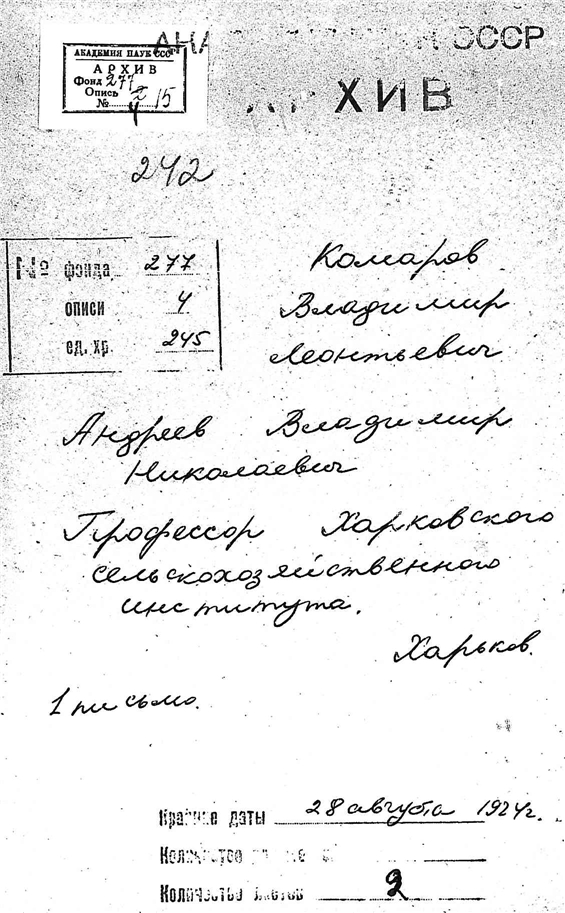 АКАДЕМИЯ НАУК СССР
АРХИВ
Фонд 277
Опись
№ 4 15
СССР
АРХИВ
242
№ фонда 277
описи 4
ед. хр. 245
Комаров
Владимир
Леонтьевич
Андреев Владимир
Николаевич
Профессор Харковского
сельскохозяйственного
института.
Харьков.
1 письмо.
Крайние даты 28 августа 1924г.
Количество
Количество листов 2